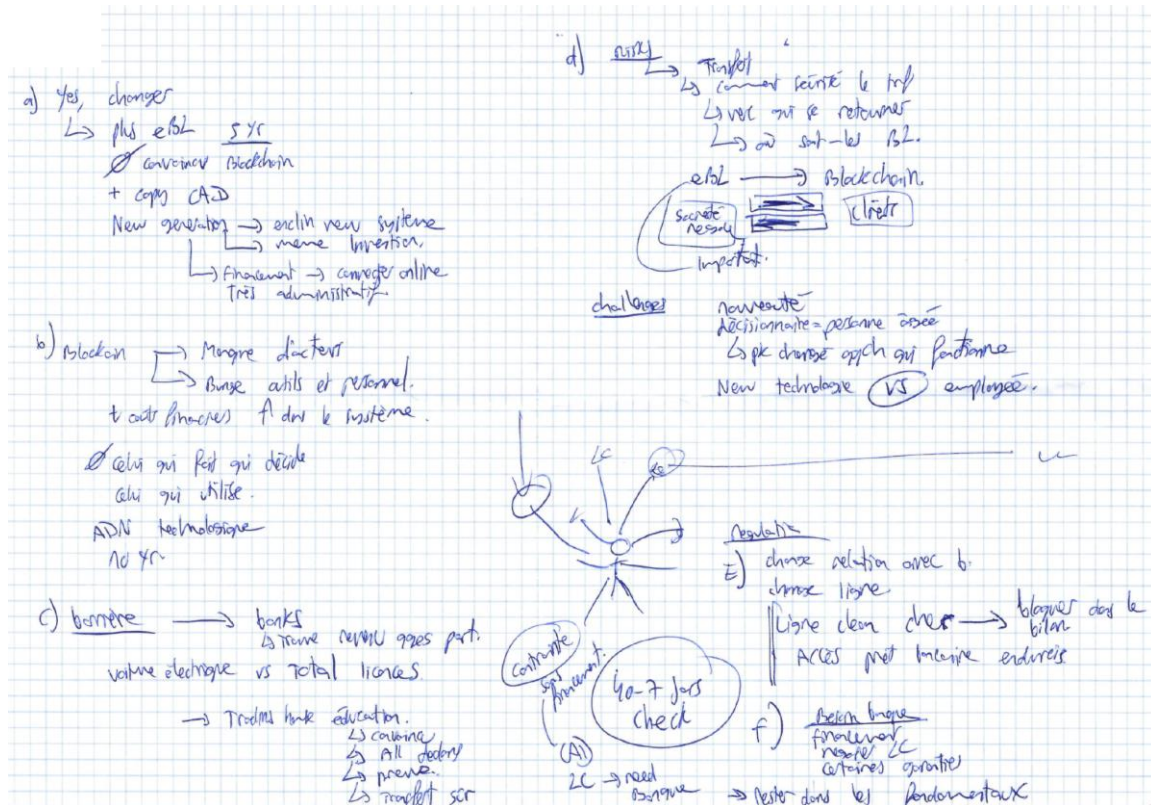 a) Yes, changer
↳ plus eBL 5 yr
Ø convaincu Blockchain
+ copy CAD
New generation → enclin new système
→ meme Invention.
↳ Financement → connecter online
Très administratif.
b) Blockain → Manque d'acteurs
→ Bunge outils et personnel.
+ coûts financiers ↑ dans le système.
Ø Celui qui fait qui décide
Celui qui utilise.
ADN technologique
10 yr.
c) barrière → banks
voiture électrique vs Total licences
→ éducation.
↳ All
↳ preuve
↳ transfert sur
d) risks
↳ Transfert
↳ comment sécurité le trf
↳ vers qui se retourner
↳ où sont-les BL.
eBL → Blockchain.
Société négoce
clients
important.
challenges nouveauté
décisionnaire = personne
↳ pk changé qui fonctionne
New technologie VS employée.
LC
Contrainte
40-7 jours
check
LC → need
Banque
regulation
E) change relation avec b.
change ligne
Ligne clean cher → bloquer dans le
bilan
Accès
f) Besoin banque
financement
négoce LC
certaines garanties
→ rester dans les fondamentaux